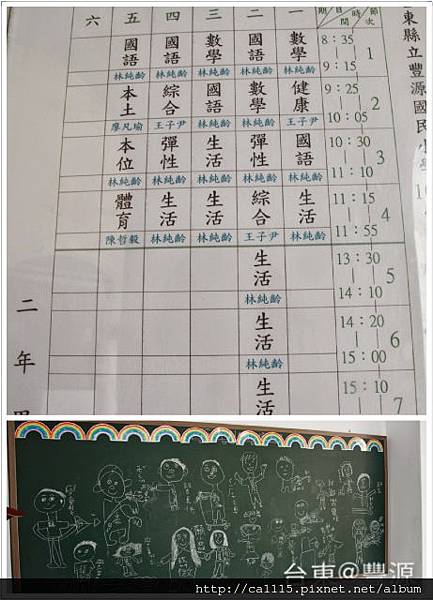 東縣立豐源國民小學 10
六 五 四 三 二 一 星期 日 時間 節次
國語 國語 數學 國語 數學 8:35 | 9:15 1
林純齡 林純齡 林純齡 林純齡 林純齡
本土 綜合 國語 數學 健康 9:25 | 10:05 2
廖凡瑜 王子尹 林純齡 林純齡 王子尹
本位 彈性 生活 彈性 國語 10:30 | 11:10 3
林純齡 林純齡 林純齡 林純齡 林純齡
體育 生活 生活 綜合 生活 11:15 | 11:55 4
陳哲毅 林純齡 林純齡 王子尹 林純齡
生活 13:30 | 14:10 5
林純齡
生活 14:20 | 15:00 6
林純齡
生活 15:10 7
二年
台東@豐源
http://call15.pixnet.net/album